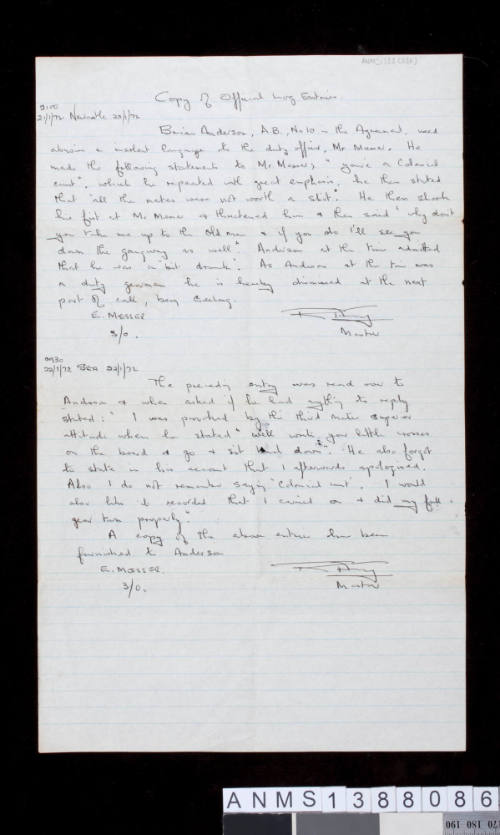 ANMS1388[086]
Copy of Official Log Entries.
2100
21/1/72 Newcastle 22/1/72
Brian Anderson, A.B., No 10 in the Agreement, used
abusive & insolent language to the duty officer, Mr Messer. He
made the following statements to Mr Messer, "you're a Colonial
cunt", which he repeated with great emphasis, he then stated
that "all the mates were not worth a shit". He then shook
his fist at Mr Messer & threatened him & then said "why don't
you take me up to the Old man & if you do I'll see you
down the gangway as well" Anderson at the time admitted
that he was "a bit drunk". As Anderson at the time was
a duty gearman he is hereby dismissed at the next
port of call, being Geelong.
E. MESSER
3/O.
Master
0930
22/1/72 SEA 22/1/72
The preceding entry was read over to
Anderson & when asked if he had anything to reply
stated: "I was provoked by the third mates superior
attitude when he stated "well write your little crosses
on the board & go & sit down". He also forgot
to state in his account that I afterwards apologised.
Also I do not remember saying "Colonial cunt". I would
also like it recorded that I carried on & did my full
gear turn properly".
A copy of the above entries has been
furnished to Anderson
E. MESSER.
3/O.
Master
ANMS1388086
170 180 190